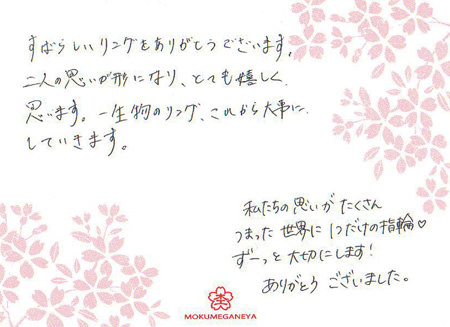 すばらしいリングをありがとうございます。
二人の思いが形になり、とても嬉しく
思います。一生物のリング、これから大事に
していきます。
私たちの思いが たくさん
つまった 世界に 1つだけの指輪♡
ずーっと 大切にします!
ありがとう ございました。
MOKUMEGANEYA